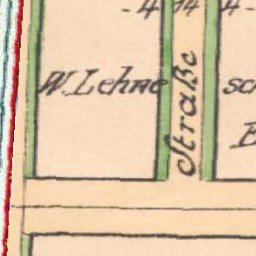 -4 14 4-
W. Lehne
Straße